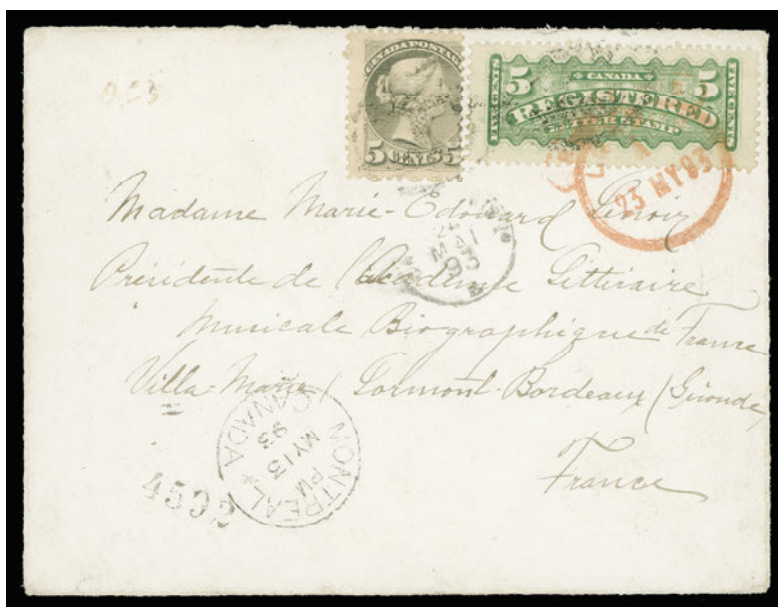 CANADA POSTAGE
5 CENTS 5
5 CANADA 5
REGISTERED
LETTER STAMP
FIVE CENTS
FIVE CENTS
23 MY 93
24
MAI
93
Madame Marie-Edouard Lenoir
Présidente de l'Académie Littéraire
Musicale Biographique de France
Villa-Maria / Lormont-Bordeaux / Gironde
France
MONTREAL CANADA
PM
MY 13
93
4592